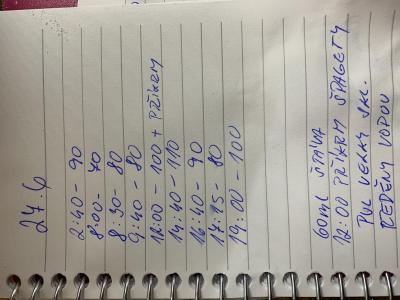 27.6
2:40 - 90
8:00 - 70
8:30 - 80
9:40 - 80
12:00 - 100 + PŘÍKRM
14:40 - 110
16:40 - 90
17:15 - 80
19:00 - 100
60ml ŠŤÁVA
12:00 PŘÍKRM ŠPAGETY
PUL VELKY SKL.
ŘEDĚNY VODOU